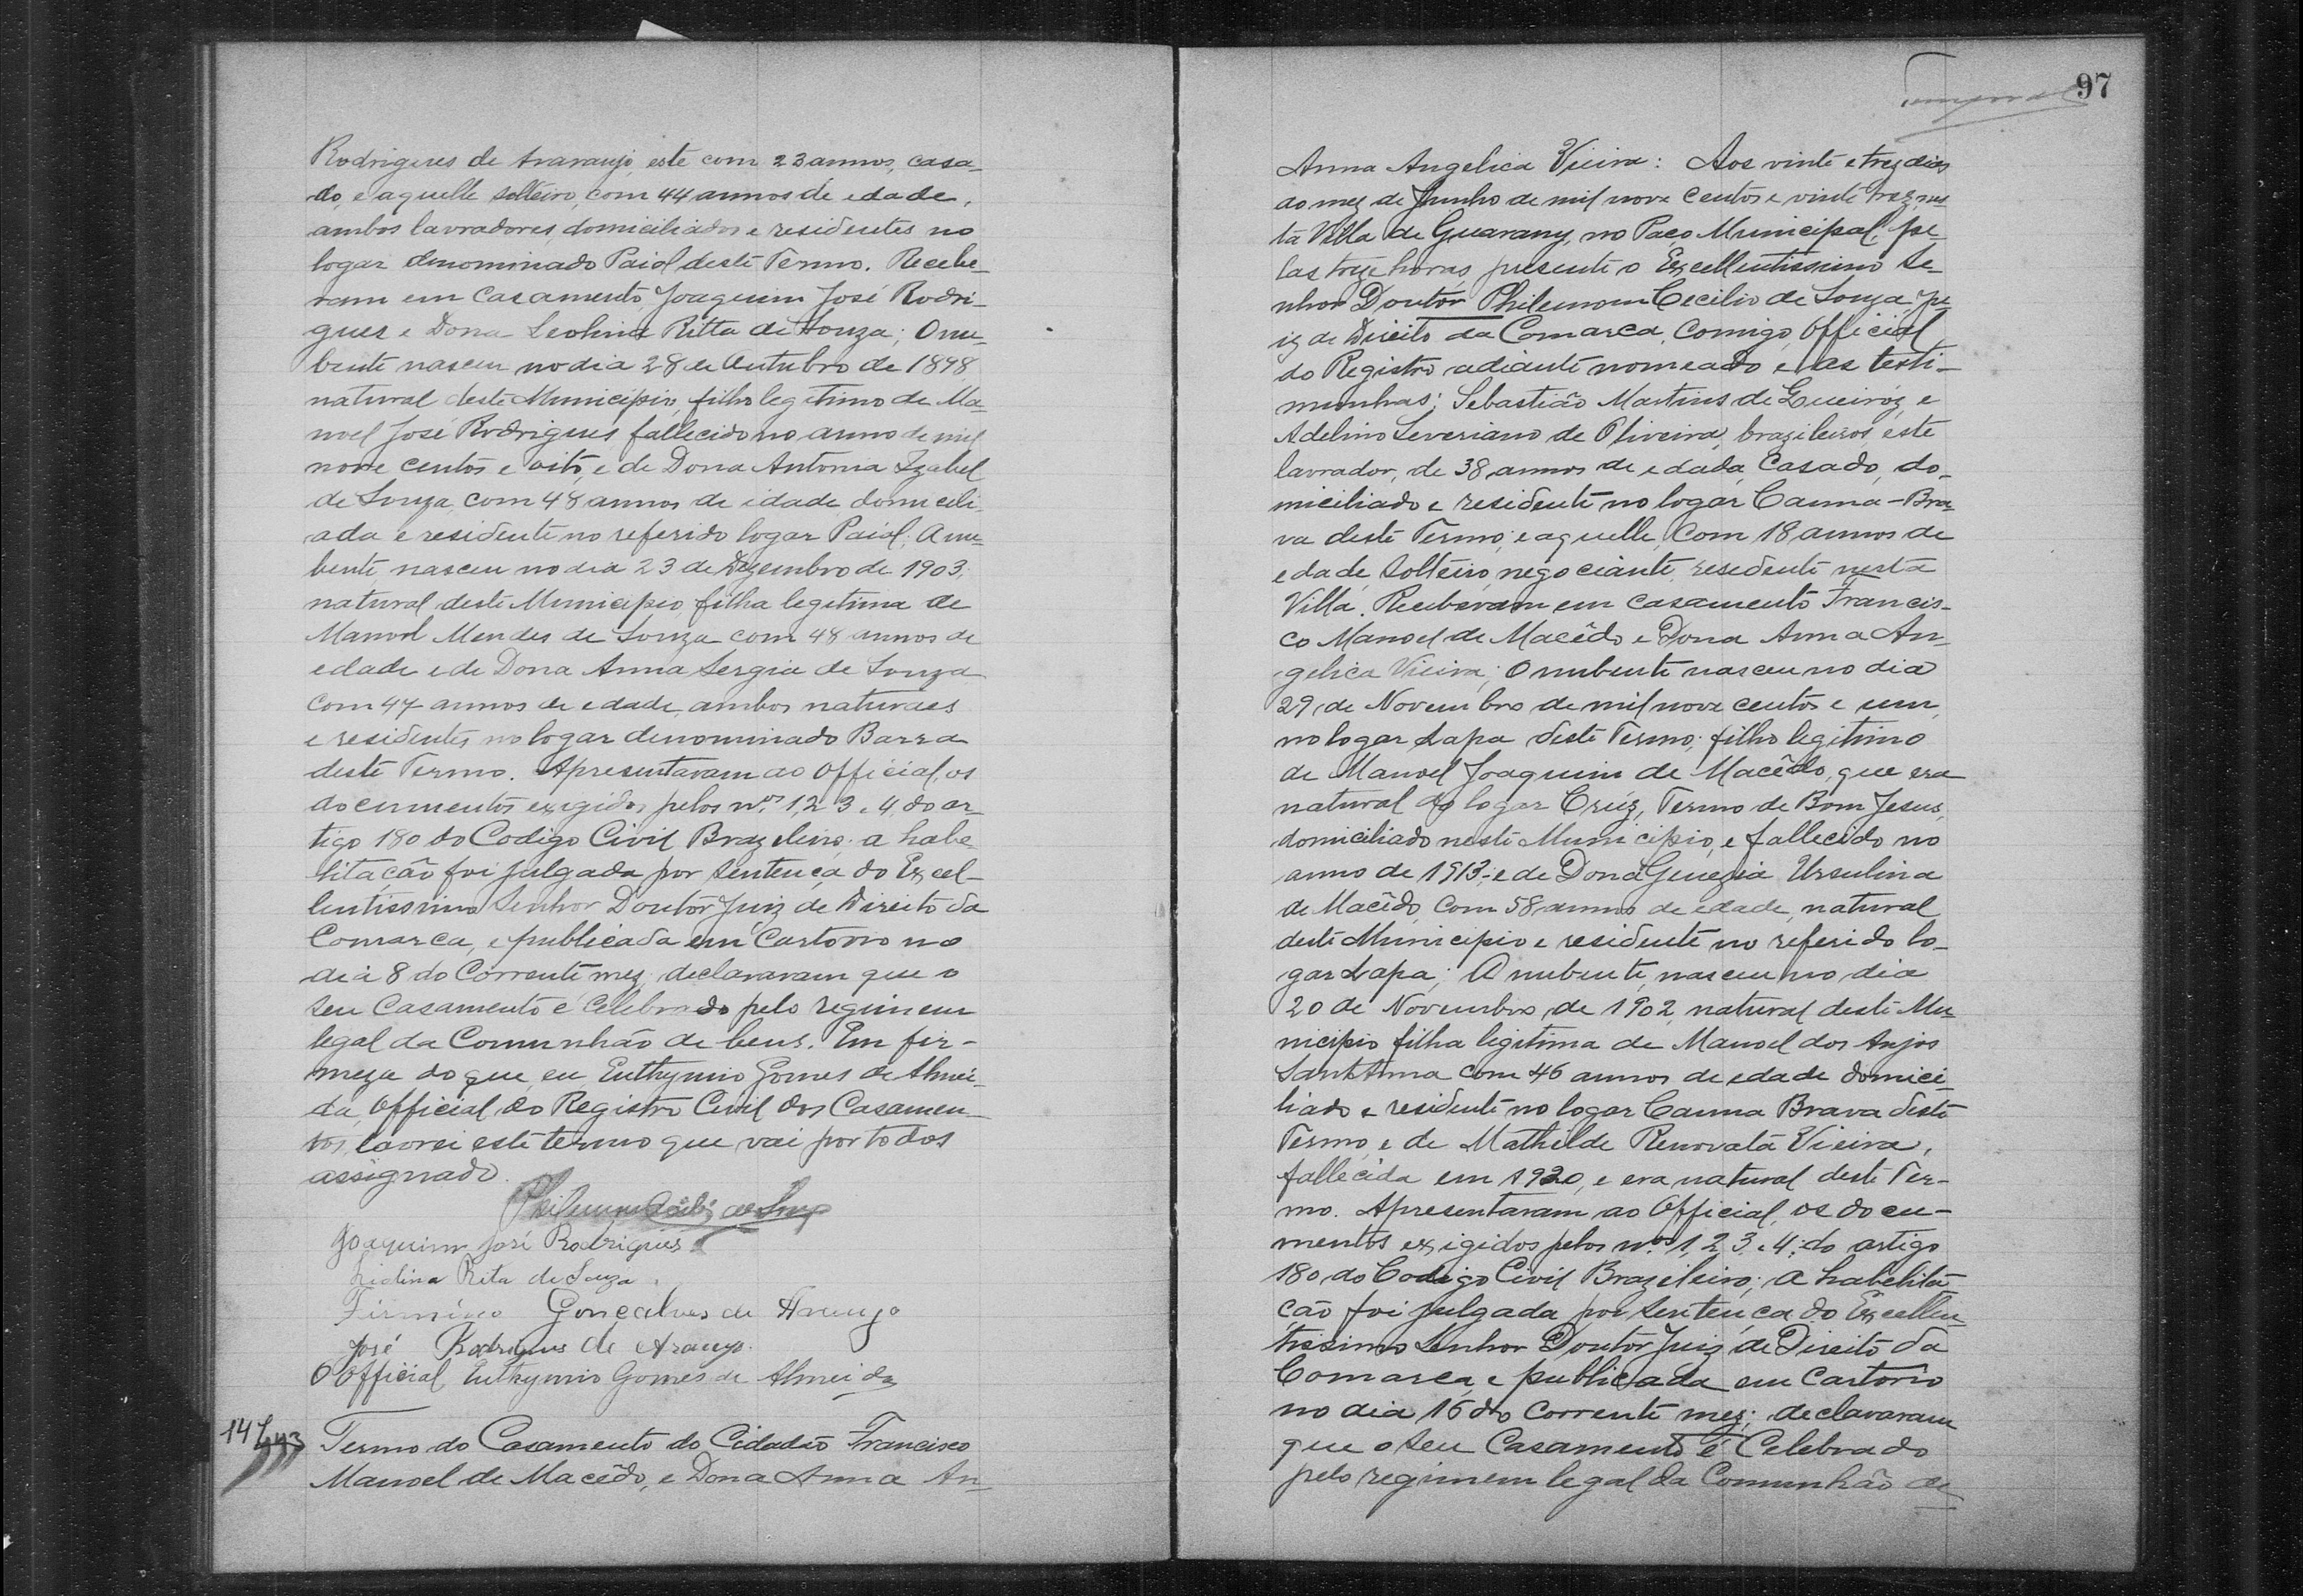 Rodrigues de Araraujo, este com 23 annos, casa-
do, e aquelle solteiro, com 44 annos de edade,
ambos lavradores, domiciliados e residentes no
logar denominado Paiol deste Termo. Recebe-
ram em Casamento, Joaquim José Rodri-
gues e Dona Leolina Ritta de Souza; O nu-
bente nasceu no dia 28 de Outubro de 1898
natural deste Municipio, filho legitimo de Ma-
noel José Rodrigues fallecido no anno de mil
nove centos e oito, e de Dona Antonia Izabel
de Souza, com 48 annos de idade domicili-
ada e residente no referido logar Paiol; A nu-
bente, nasceu no dia 23 de Dezembro de 1903;
natural deste Municipio, filha legitima de
Manoel Mendes de Souza com 48 annos de
edade e de Dona Anna Sergia de Souza
com 47 annos de edade, ambos naturaes
e residentes no logar denominado Barra
deste Termo. Apresentaram ao Official, os
documentos exigidos pelos nos 1, 2, 3 e 4, do ar-
tigo 180 do Codigo Civil Brazileiro; a habe-
litação foi julgada por sentença do Excel-
lentissimo Senhor Doutor Juiz de Direito da
Comarca, e publicada em Cartorio no
dia 8 do Corrente mez; declararam que o
seu Casamento é Celebrado pelo regimem
legal da Comunhão de bens. Em fir-
meza do que, eu Euthymio Gomes de Almei-
da, Official do Registro Civil dos Casamen-
tos, lavrei este termo que vai por todos
assignado.
Philemon Cecilio de Souza
Joaquim José Rodrigues
Liolina Rita de Souza
Firmino Gonçalves de Araujo
José Rodrigues de Araujo.
O Official Euthymio Gomes de Almeida
Termo do Casamento do Cidadão Francisco
Manoel de Macêdo, e Dona Anna An-
97
Anna Angelica Vieira: Aos vinte e trez dias
do mez de Junho de mil nove centos e vinte trez, nes-
ta Villa de Guarany, no Paço Municipal, pe-
las treze horas presente o Excellentissimo Se-
nhor Doutor Philemon Cecilio de Souza, Ju-
iz de Direito da Comarca, Comigo Official
do Registro adiante nomeado e as testi-
munhas: Sebastião Martins de Queiróz, e
Adelino Severiano de Oliveira, brazileiros, este
lavrador, de 38 annos de edade, Casado, do-
miciliado e residente no logar Canna-Bra-
va deste Termo; e aquelle, Com 18 annos de
edade, Solteiro, negociante, residente nesta
Villa. Receberam em casamento Francis-
co Manoel de Macêdo e Dona Anna An-
gelica Vieira; O nubente nasceu no dia
29, de Novembro de mil nove centos e um,
no logar Lapa deste Termo; filho legitimo
de Manoel Joaquim de Macêdo, que era
natural do logar Crúz, Termo de Bom Jesus,
domiciliado neste Municipio, e fallecido no
anno de 1913; e de Dona Genezia Ursulina
de Macêdo, Com 58 annos de edade, natural
deste Municipio e residente no referido lo-
gar Lapa; A nubente, nasceu no dia
20 de Novembro de 1902, natural deste Mu-
nicipio filha legitima de Manoel dos Anjos
Sant'Anna com 46 annos de edade domici-
liado e residente no logar Canna Brava deste
Termo, e de Mathilde Renovata Vieira,
fallecida em 1920, e era natural deste Ter-
mo. Apresentaram ao Official, os docu-
mentos exigidos pelos nos 1, 2, 3, e 4, do artigo
180 do Codigo Civil Brazileiro; a habelita-
ção foi julgada por sentença do Excellen-
tissimo Senhor Doutor Juiz de Direito da
Comarca, e publicada em Cartorio
no dia 16 do Corrente mez; declararam
que o seu Casamento é Celebrado
pelo regimem legal da Comunhão de